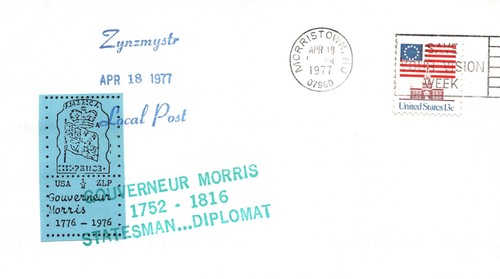 Zynzmystr
APR 18 1977
Local Post
MORRISTOWN, NJ
APR 18
1977
07960
SAVE
YOUR VISION
WEEK
United States 13c
AMERICA
USA ½ ZLP
Gouverneur
Morris
1776 - 1976
GOUVERNEUR MORRIS
1752 - 1816
STATESMAN...DIPLOMAT